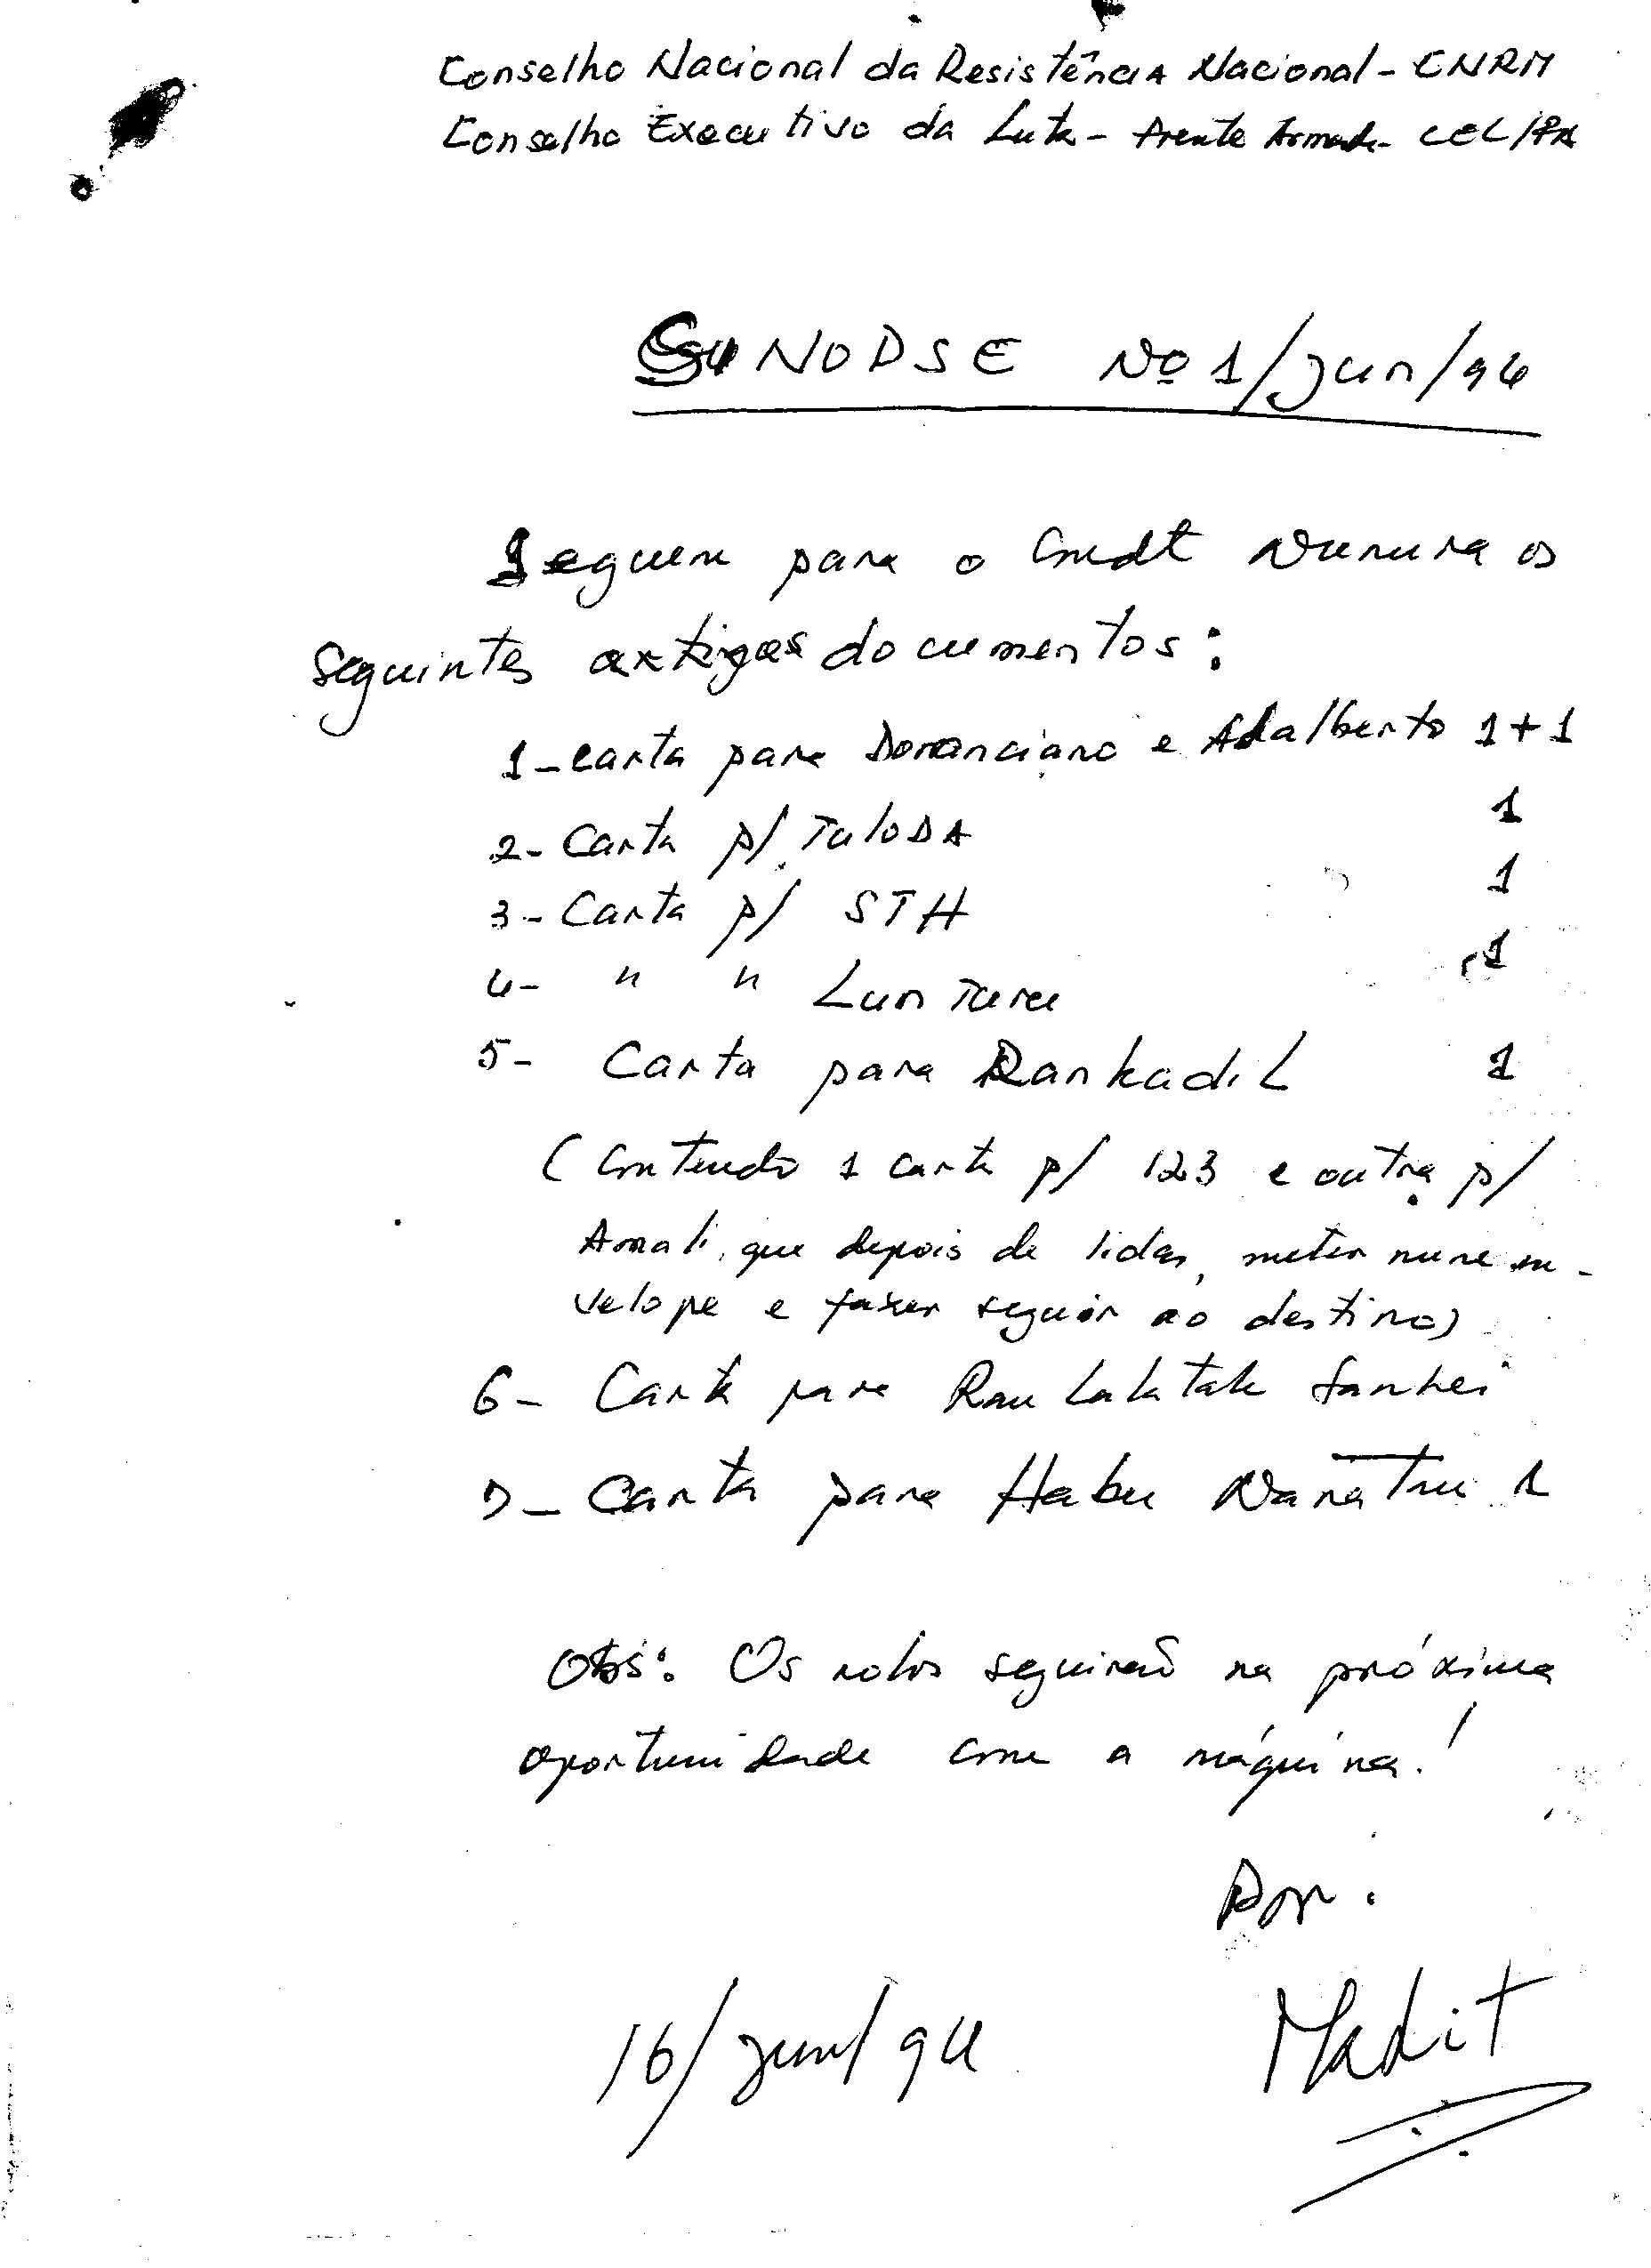 Conselho Nacional da Resistência Nacional - CNRM
Conselho Executivo da Luta - Frente Armada - CEL/FA
Nº 1/jun/94
Seguem para o Cmdt Nunura os
seguintes artigos documentos:
1 - Carta para Domanciano e Adalberto 1+1
2 - Carta p/ TaloDA 1
3 - Carta p/ STH 1
4 - " " Lun Turu 1
5 - Carta para Rankadil 1
(Contendo 1 carta p/ 123 e outra p/
Amali, que depois de lidas, meter num en-
velope e fazer seguir ao destino)
6 - Carta para
7 - Carta para Habu 1
Obs: Os rolos seguirão na próxima
oportunidade com a máquina!
Por:
16/jun/94